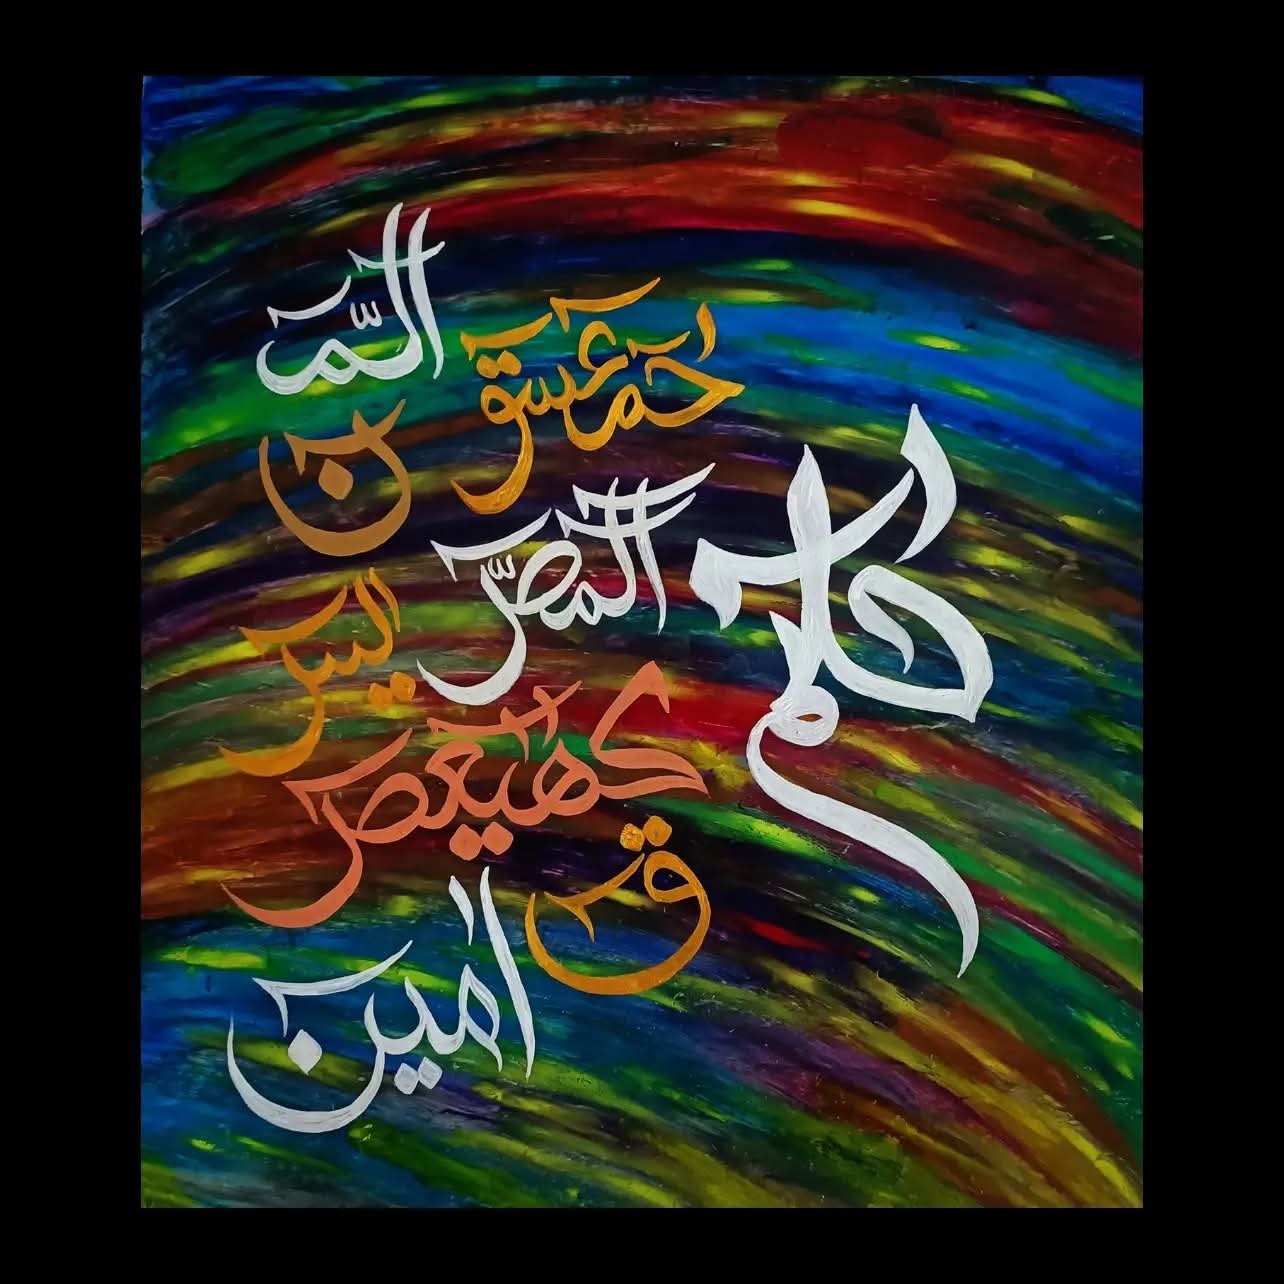 الٓمّٓ
حمٓعٓسٓقٓ
نٓ
الٓمّٓصٓ
اليس
كٓهٰيٰعٓصٓ
قٓ
اٰمين